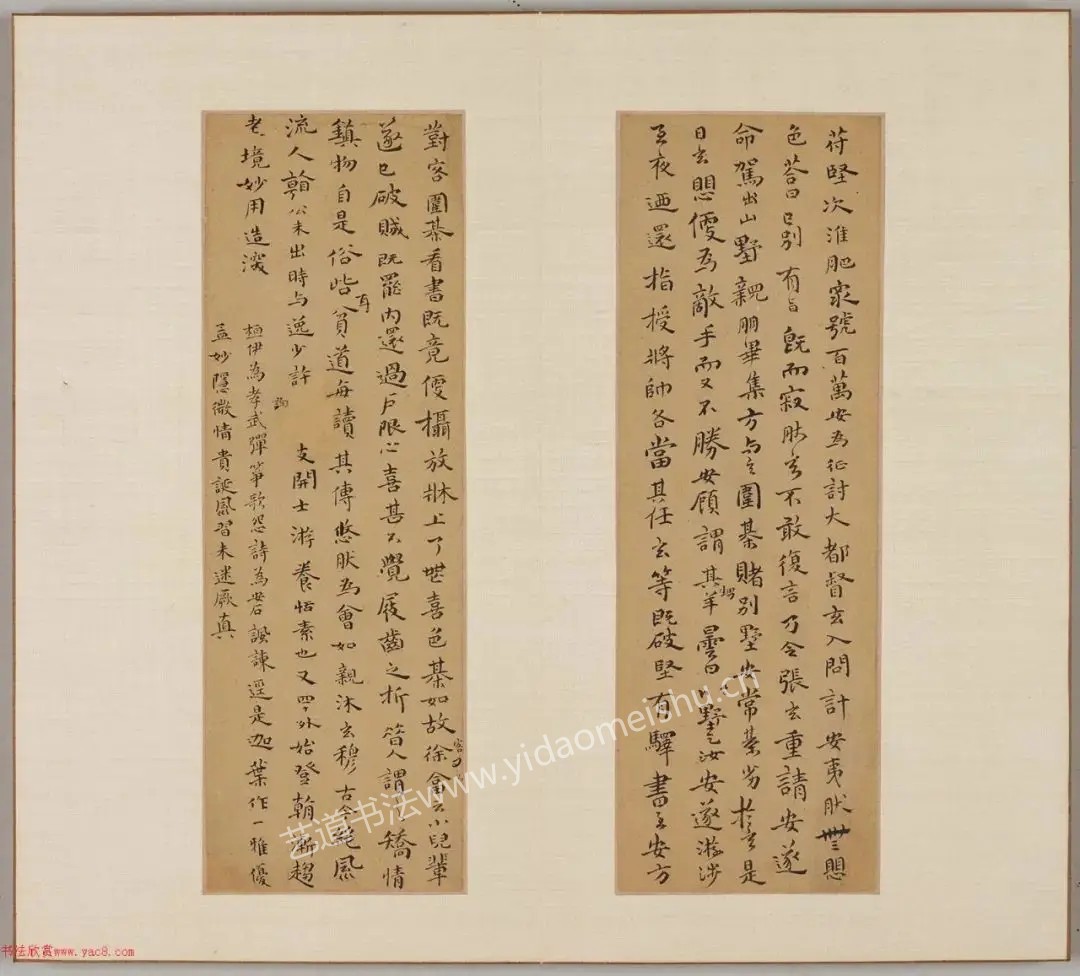 苻堅次淮肥衆號百萬安為征討大都督玄入問計安夷然無懼
色荅曰已別有旨既而寂然玄不敢復言乃令張玄重請安遂
命駕出山墅親朋畢集方与玄圍棊賭別墅安常棊劣於玄是
日玄懼便為敵手而又不勝安顧謂其甥羊曇曰以墅乞汝安遂游涉
至夜迺還指授將帥各當其任玄等既破堅有驛書至安方
對客圍棊看書既竟便攝放牀上了無喜色棊如故客問徐荅云小兒輩
遂已破賊既罷內還過戶限心喜甚不覺屐齒之折昔人謂之矯情
鎮物自是俗耳貧道每讀其傳悠然為會如親沐玄穆古今絕風
流人公未出時与逸少許詢支開士游養恬素也又四十外始登朝漸趨
老境妙用造深
桓伊為孝武彈箏歌怨詩為安石諷諫逕是迦葉作一雅優
孟妙隱微情貴誕風習未迷厥真
艺道书法www.yidaomeishu.cn
书法欣赏www.yac8.com